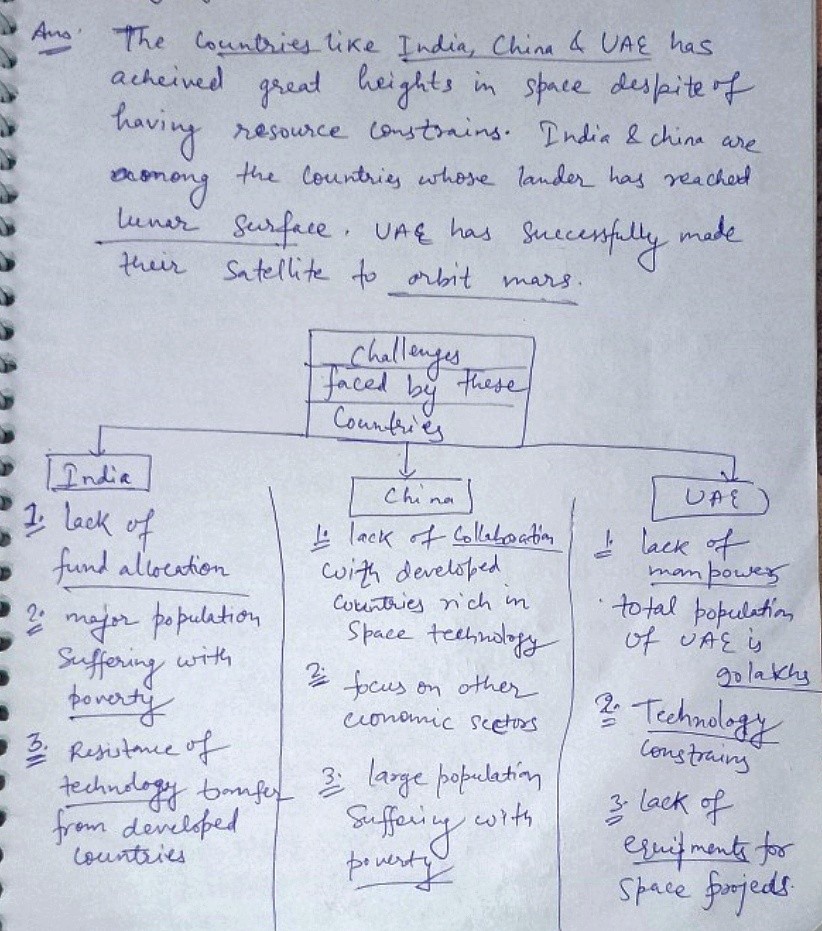 Ans. The Countries like India, China & UAE has
acheived great heights in space despite of
having resource constrains. India & china are
among the Countries whose lander has reached
lunar surface. UAE has successfully made
their satellite to orbit mars.
Challenges
faced by these
Countries
India
1. lack of
fund allocation
2. major population
suffering with
poverty
3. Resistance of
technology transfer
from developed
countries
China
1. lack of Collaboration
with developed
countries rich in
space technology
2. focus on other
economic sectors
3. large population
suffering with
poverty
UAE
1. lack of
manpower
total population
of UAE is
90 lakhs
2. Technology
constrains
3. lack of
equipments for
space projects.